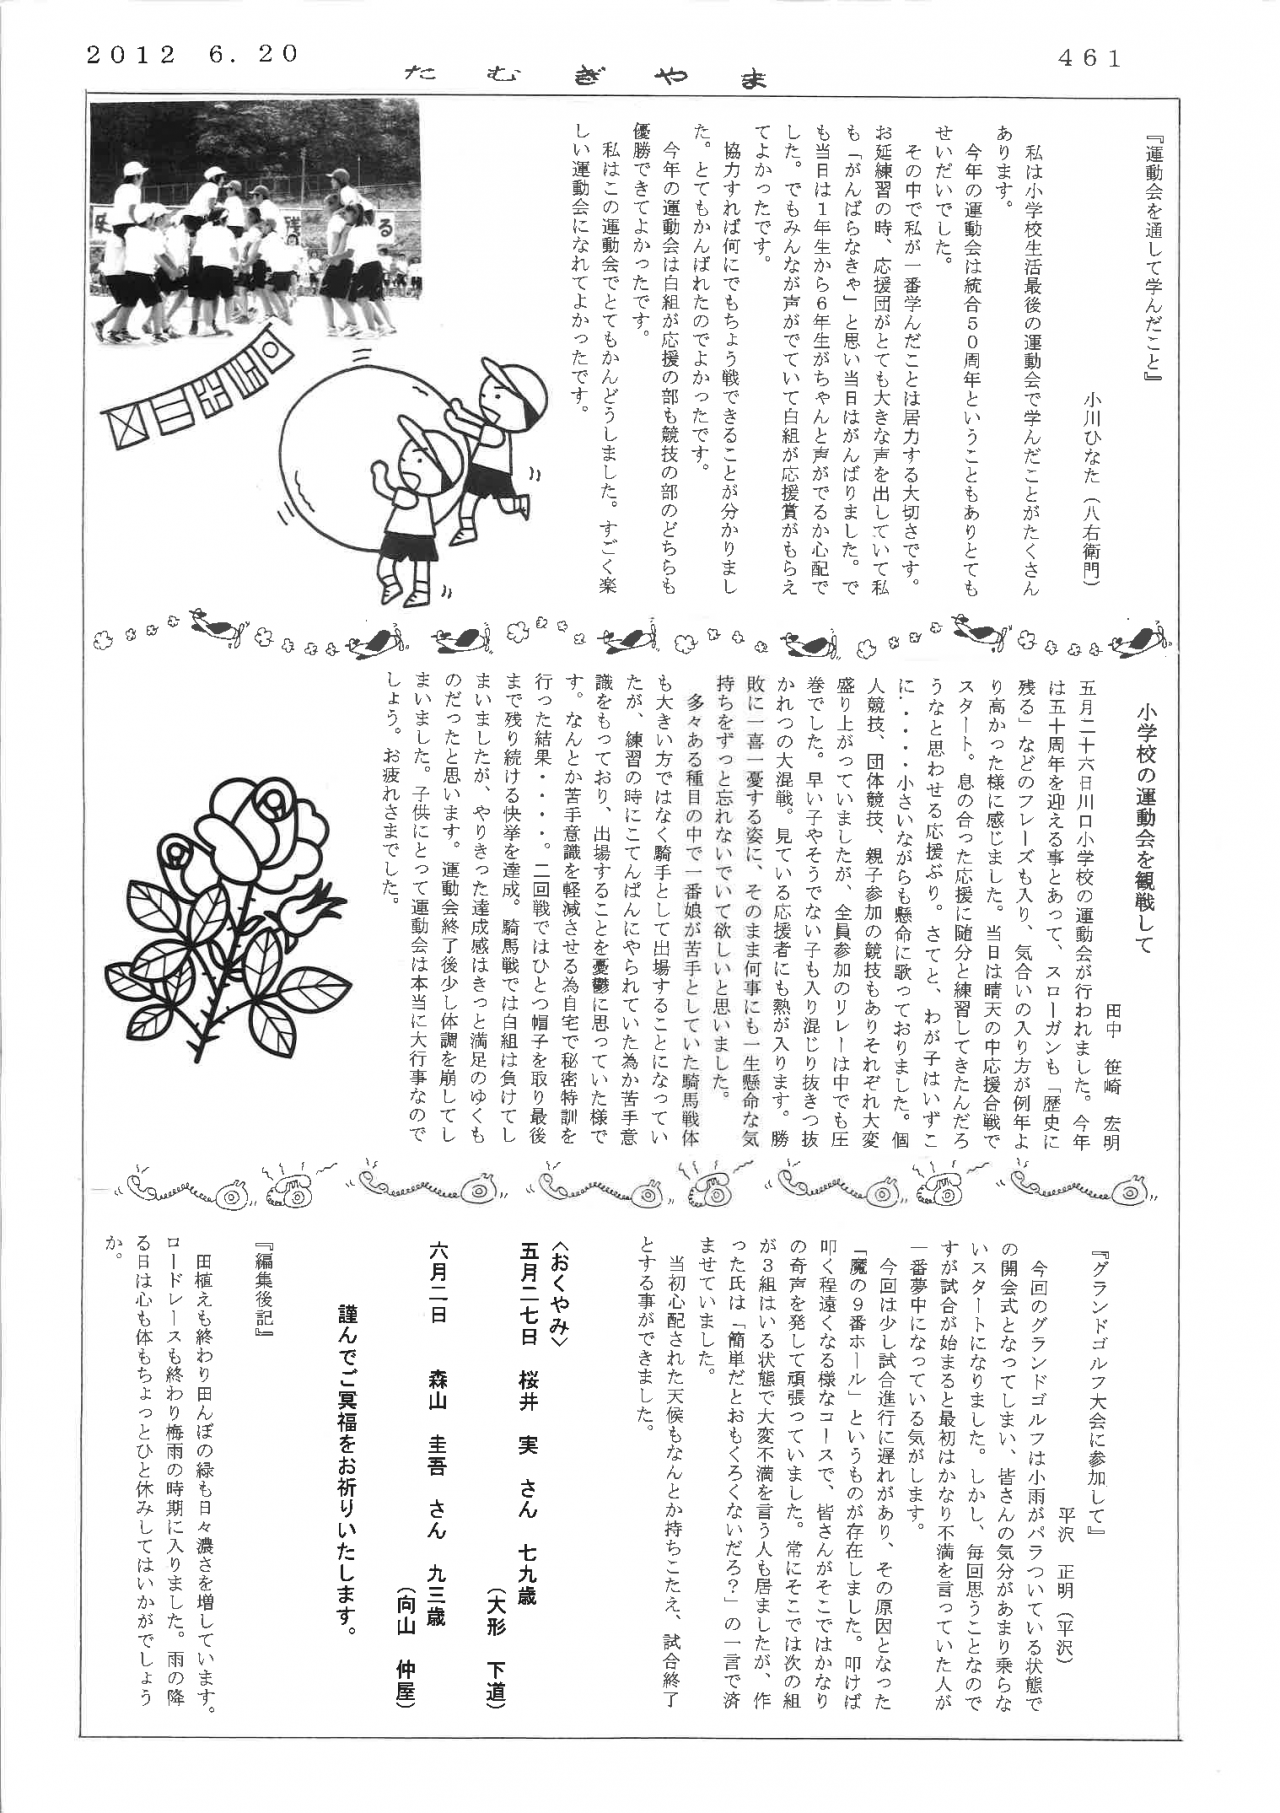 2012 6.20
たむぎやま
461
『運動会を通して学んだこと』
小川ひなた（八右衛門）
私は小学校生活最後の運動会で学んだことがたくさん
あります。
今年の運動会は統合50周年ということもありとても
せいだいでした。
その中で私が一番学んだことは居力する大切さです。
お延練習の時、応援団がとても大きな声を出していて私
も「がんばらなきゃ」と思い当日はがんばりました。で
も当日は1年生から6年生がちゃんと声がでるか心配で
した。でもみんなが声がでていて白組が応援賞がもらえ
てよかったです。
協力すれば何にでもちょう戦できることが分かりまし
た。とてもかんばれたのでよかったです。
今年の運動会は白組が応援の部も競技の部のどちらも
優勝できてよかったです。
私はこの運動会でとてもかんどうしました。すごく楽
しい運動会になれてよかったです。
残る
小学校の運動会を観戦して
田中 笹崎 宏明
五月二十六日川口小学校の運動会が行われました。今年
は五十周年を迎える事とあって、スローガンも「歴史に
残る」などのフレーズも入り、気合いの入り方が例年よ
り高かった様に感じました。当日は晴天の中応援合戦で
スタート。息の合った応援に随分と練習してきたんだろ
うなと思わせる応援ぶり。さてと、わが子はいずこ
に・・・・小さいながらも懸命に歌っておりました。個
人競技、団体競技、親子参加の競技もありそれぞれ大変
盛り上がっていましたが、全員参加のリレーは中でも圧
巻でした。早い子やそうでない子も入り混じり抜きつ抜
かれつの大混戦。見ている応援者にも熱が入ります。勝
敗に一喜一憂する姿に、そのまま何事にも一生懸命な気
持ちをずっと忘れないでいて欲しいと思いました。
多々ある種目の中で一番娘が苦手としていた騎馬戦体
も大きい方ではなく騎手として出場することになってい
たが、練習の時にこてんぱんにやられていた為か苦手意
識をもっており、出場することを憂鬱に思っていた様で
す。なんとか苦手意識を軽減させる為自宅で秘密特訓を
行った結果・・・・。二回戦ではひとつ帽子を取り最後
まで残り続ける快挙を達成。騎馬戦では白組は負けてし
まいましたが、やりきった達成感はきっと満足のゆくも
のだったと思います。運動会終了後少し体調を崩してし
まいました。子供にとって運動会は本当に大行事なので
しょう。お疲れさまでした。
『グランドゴルフ大会に参加して』
平沢 正明（平沢）
今回のグランドゴルフは小雨がパラついている状態で
の開会式となってしまい、皆さんの気分があまり乗らな
いスタートになりました。しかし、毎回思うことなので
すが試合が始まると最初はかなり不満を言っていた人が
一番夢中になっている気がします。
今回は少し試合進行に遅れがあり、その原因となった
「魔の9番ホール」というものが存在しました。叩けば
叩く程遠くなる様なコースで、皆さんがそこではかなり
の奇声を発して頑張っていました。常にそこでは次の組
が3組はいる状態で大変不満を言う人も居ましたが、作
った氏は「簡単だとおもくろくないだろ？」の一言で済
ませていました。
当初心配された天候もなんとか持ちこたえ、試合終了
とする事ができました。
〈おくやみ〉
五月二七日 桜井 実 さん 七九歳
（大形 下道）
六月二日 森山 圭吾 さん 九三歳
（向山 仲屋）
謹んでご冥福をお祈りいたします。
『編集後記』
田植えも終わり田んぼの緑も日々濃さを増しています。
ロードレースも終わり梅雨の時期に入りました。雨の降
る日は心も体もちょっとひと休みしてはいかがでしょう
か。